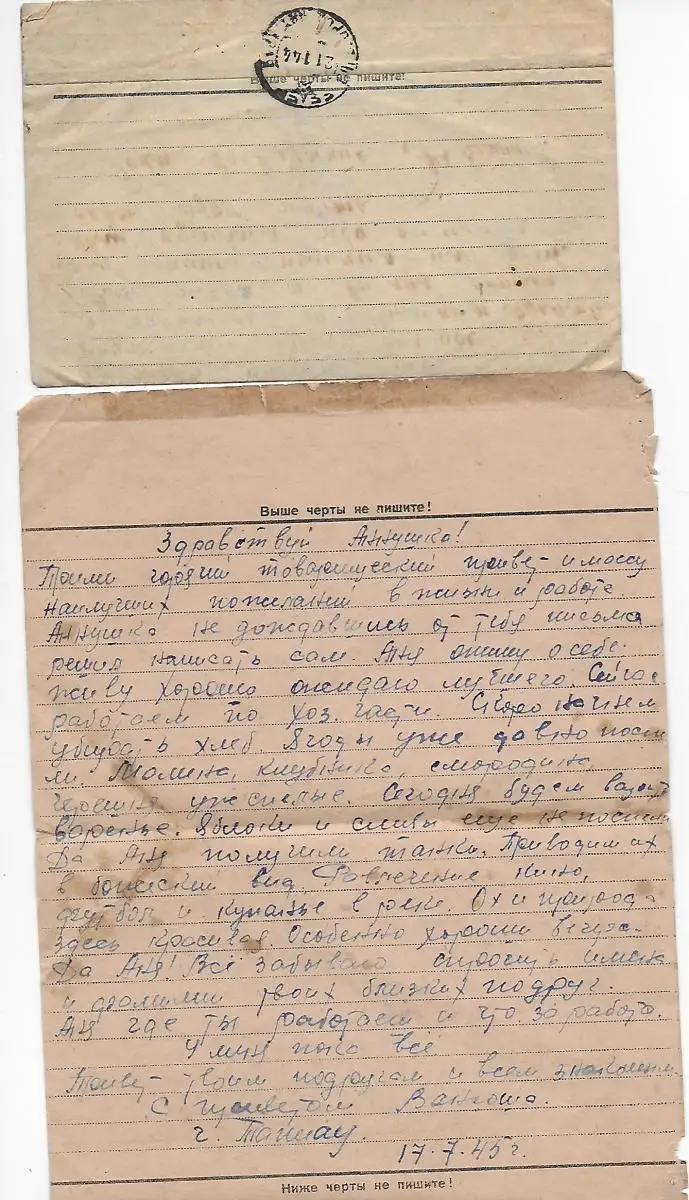 21 1 44
Выше черты не пишите!
Выше черты не пишите!
Здравствуй Аннушка!
Прими горячий товарищеский привет и массу
наилучших пожеланий в жизни и работе
Аннушка не дождавшись от тебя письма
решил написать сам. Аня опишу о себе.
живу хорошо ожидаю лучшего. Сейчас
работаем по хоз. части. Скоро начнем
убирать хлеб. Ягоды уже давно поспе
ли. Малина, клубника, смородина,
черешня уже спелые. Сегодня будем варить
варенье. Яблоки и сливы еще не поспели
Да Аня получили танки. Приводим их
в божеский вид. Развлечение кино,
футбол и купанье в реке. Ох и природа
здесь красивая Особенно хороши вечера.
Да Аня! Всё забываю спросить имена
и фамилии твоих близких подруг.
Аня где ты работаеш и что за работа.
У меня пока всё
Привет твоим подругам и всем знакомым.
С приветом Ванюша.
17.7.45 г.
Ниже черты не пишите!